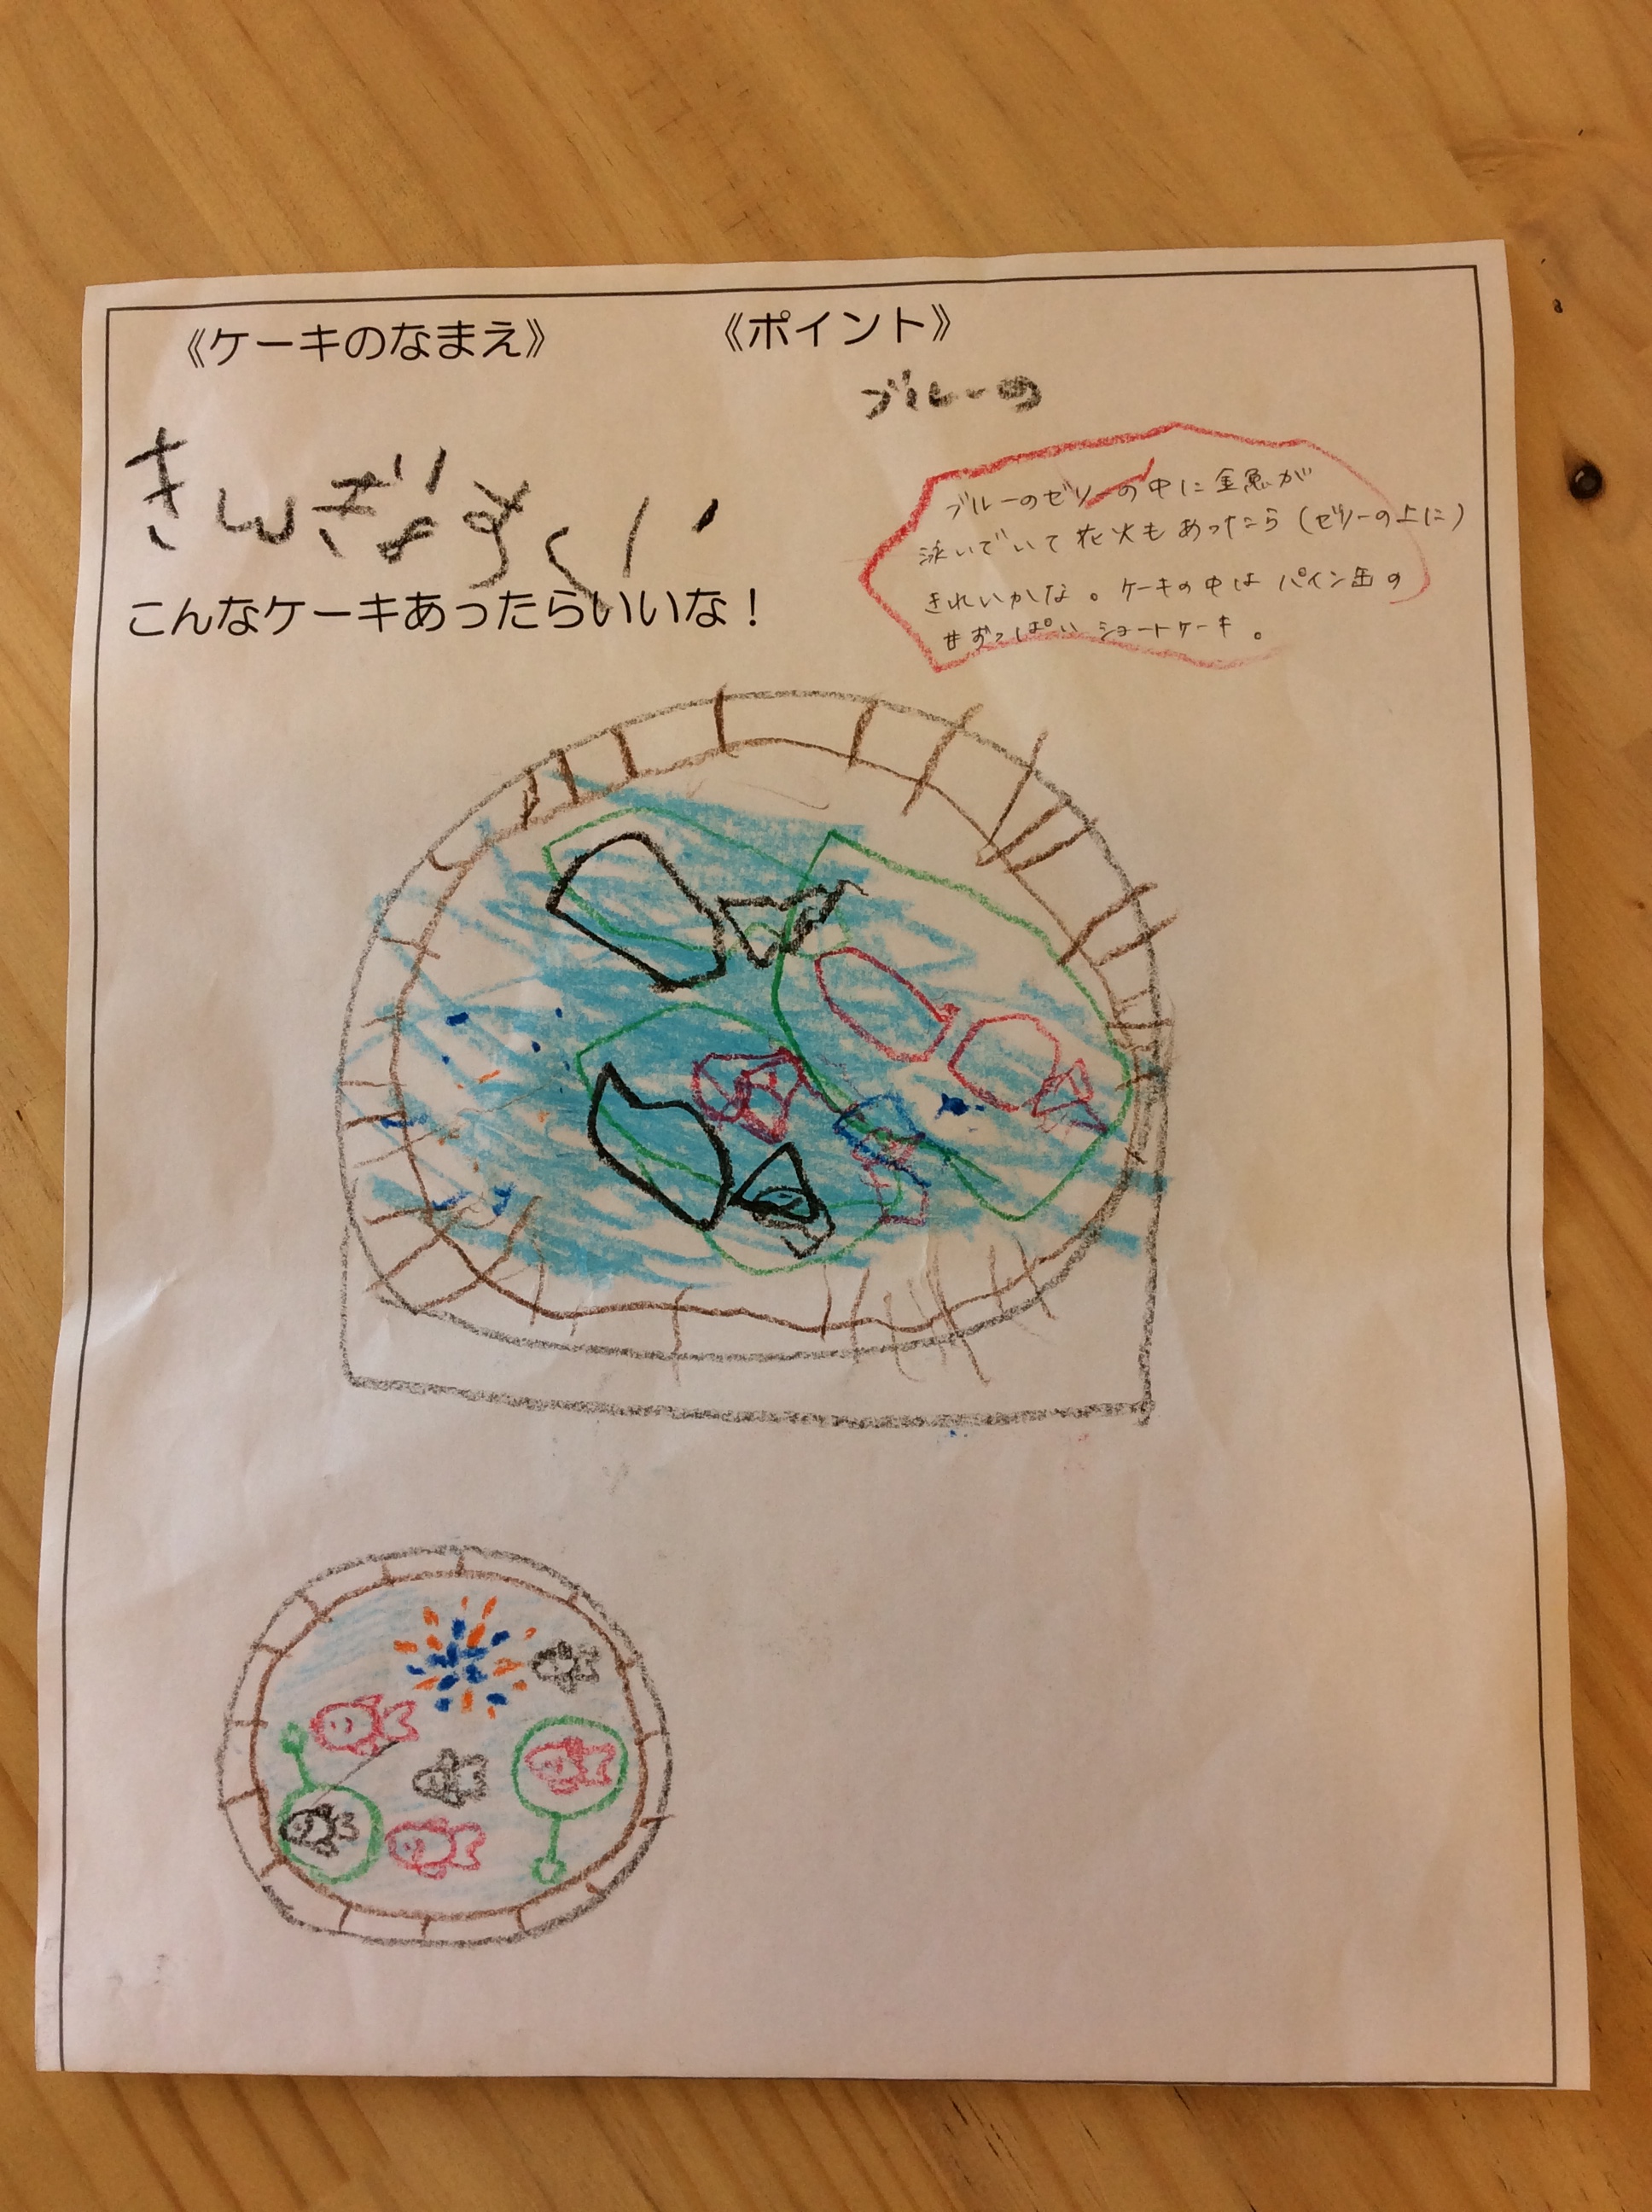 《ケーキのなまえ》
《ポイント》
ブルーの
きんぎょすくい
ブルーのゼリーの中に金魚が
泳いでいて花火もあったら(ゼリーの上に)
きれいかな。ケーキの中はパイン缶の
甘ずっぱいショートケーキ。
こんなケーキあったらいいな!